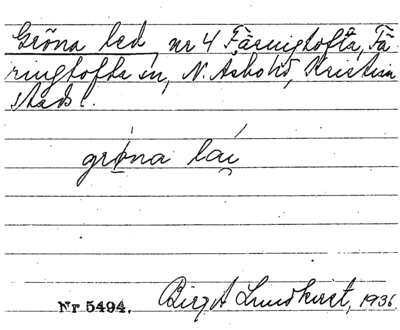 Gröna led, nr 4 Färingtofta, Fä
ringtofta sn, N. Åsbo hd, Kristian
stads l.
gröna lái̯
Nr 5494. Birgit Lundkvist, 1936